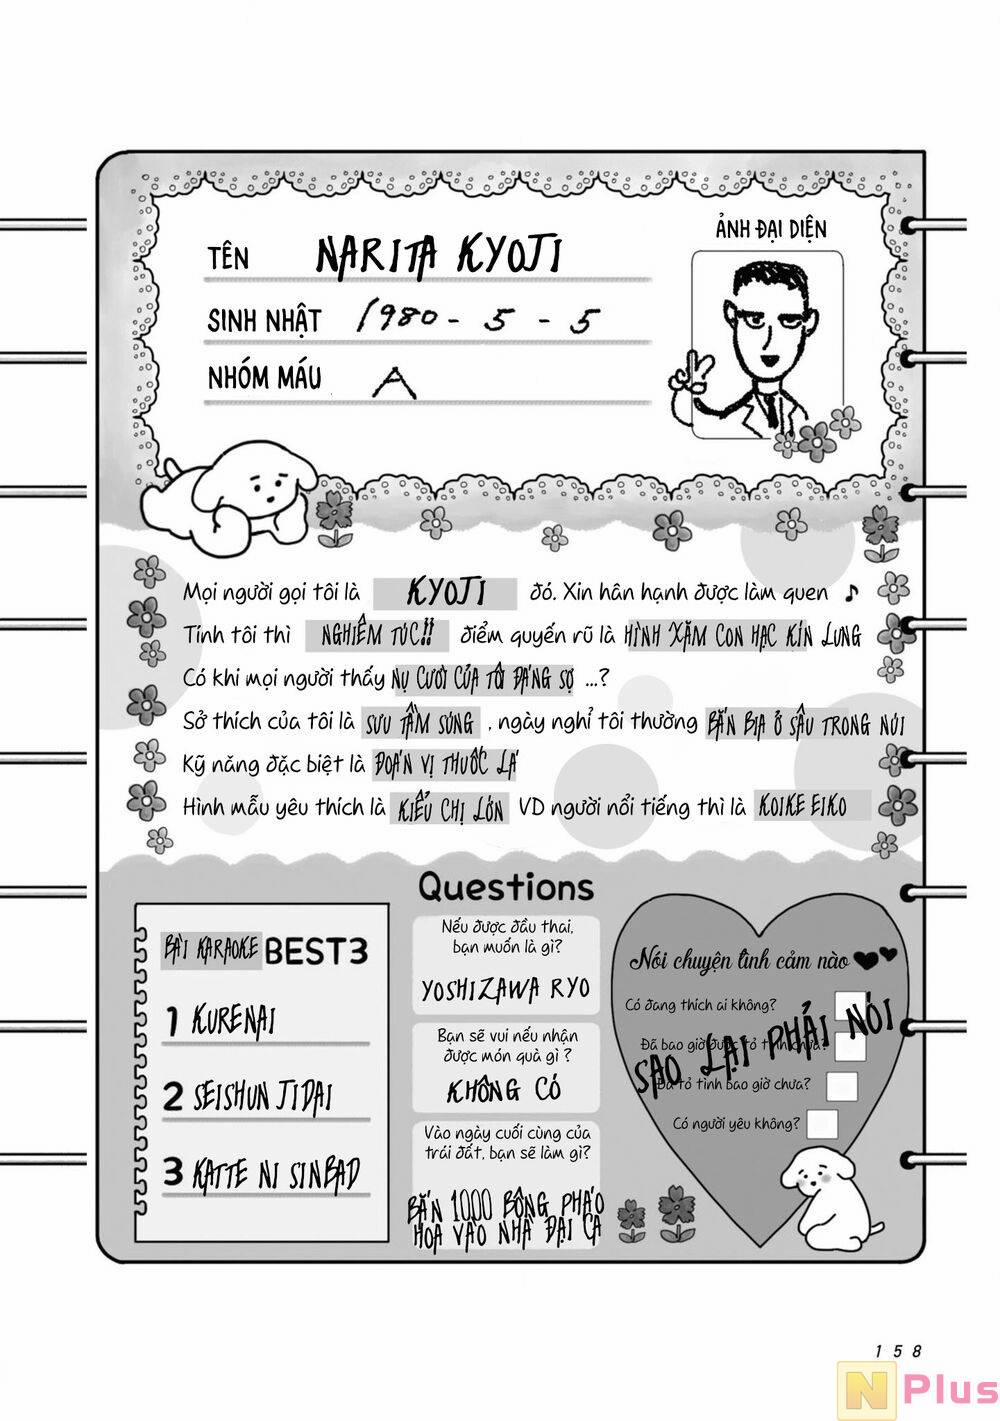 ẢNH ĐẠI DIỆN
TÊN NARITA KYOJI
SINH NHẬT 1980 - 5 - 5
NHÓM MÁU A
Mọi người gọi tôi là KYOJI đó. Xin hân hạnh được làm quen ♪
Tính tôi thì NGHIÊM TÚC!! điểm quyến rũ là HÌNH XĂM CON HẠC KÍN LƯNG
Có khi mọi người thấy NỤ CƯỜI CỦA TÔI ĐÁNG SỢ ...?
Sở thích của tôi là SƯU TẦM SÚNG, ngày nghỉ tôi thường BẮN BIA Ở SÂU TRONG NÚI
Kỹ năng đặc biệt là ĐOÁN VỊ THUỐC LÁ
Hình mẫu yêu thích là KIỂU CHỊ LỚN VD người nổi tiếng thì là KOIKE EIKO
Questions
BÀI KARAOKE BEST3
1 KURENAI
2 SEISHUN JIDAI
3 KATTE NI SINBAD
Nếu được đầu thai,
bạn muốn là gì?
YOSHIZAWA RYO
Bạn sẽ vui nếu nhận
được món quà gì ?
KHÔNG CÓ
Vào ngày cuối cùng của
trái đất, bạn sẽ làm gì?
BẮN 1000 BÔNG PHÁO
HOA VÀO NHÀ ĐẠI CA
Nói chuyện tình cảm nào
Có đang thích ai không?
Đã bao giờ được tỏ tình chưa?
Đã tỏ tình bao giờ chưa?
Có người yêu không?
SAO LẠI PHẢI NÓI
158
N Plus